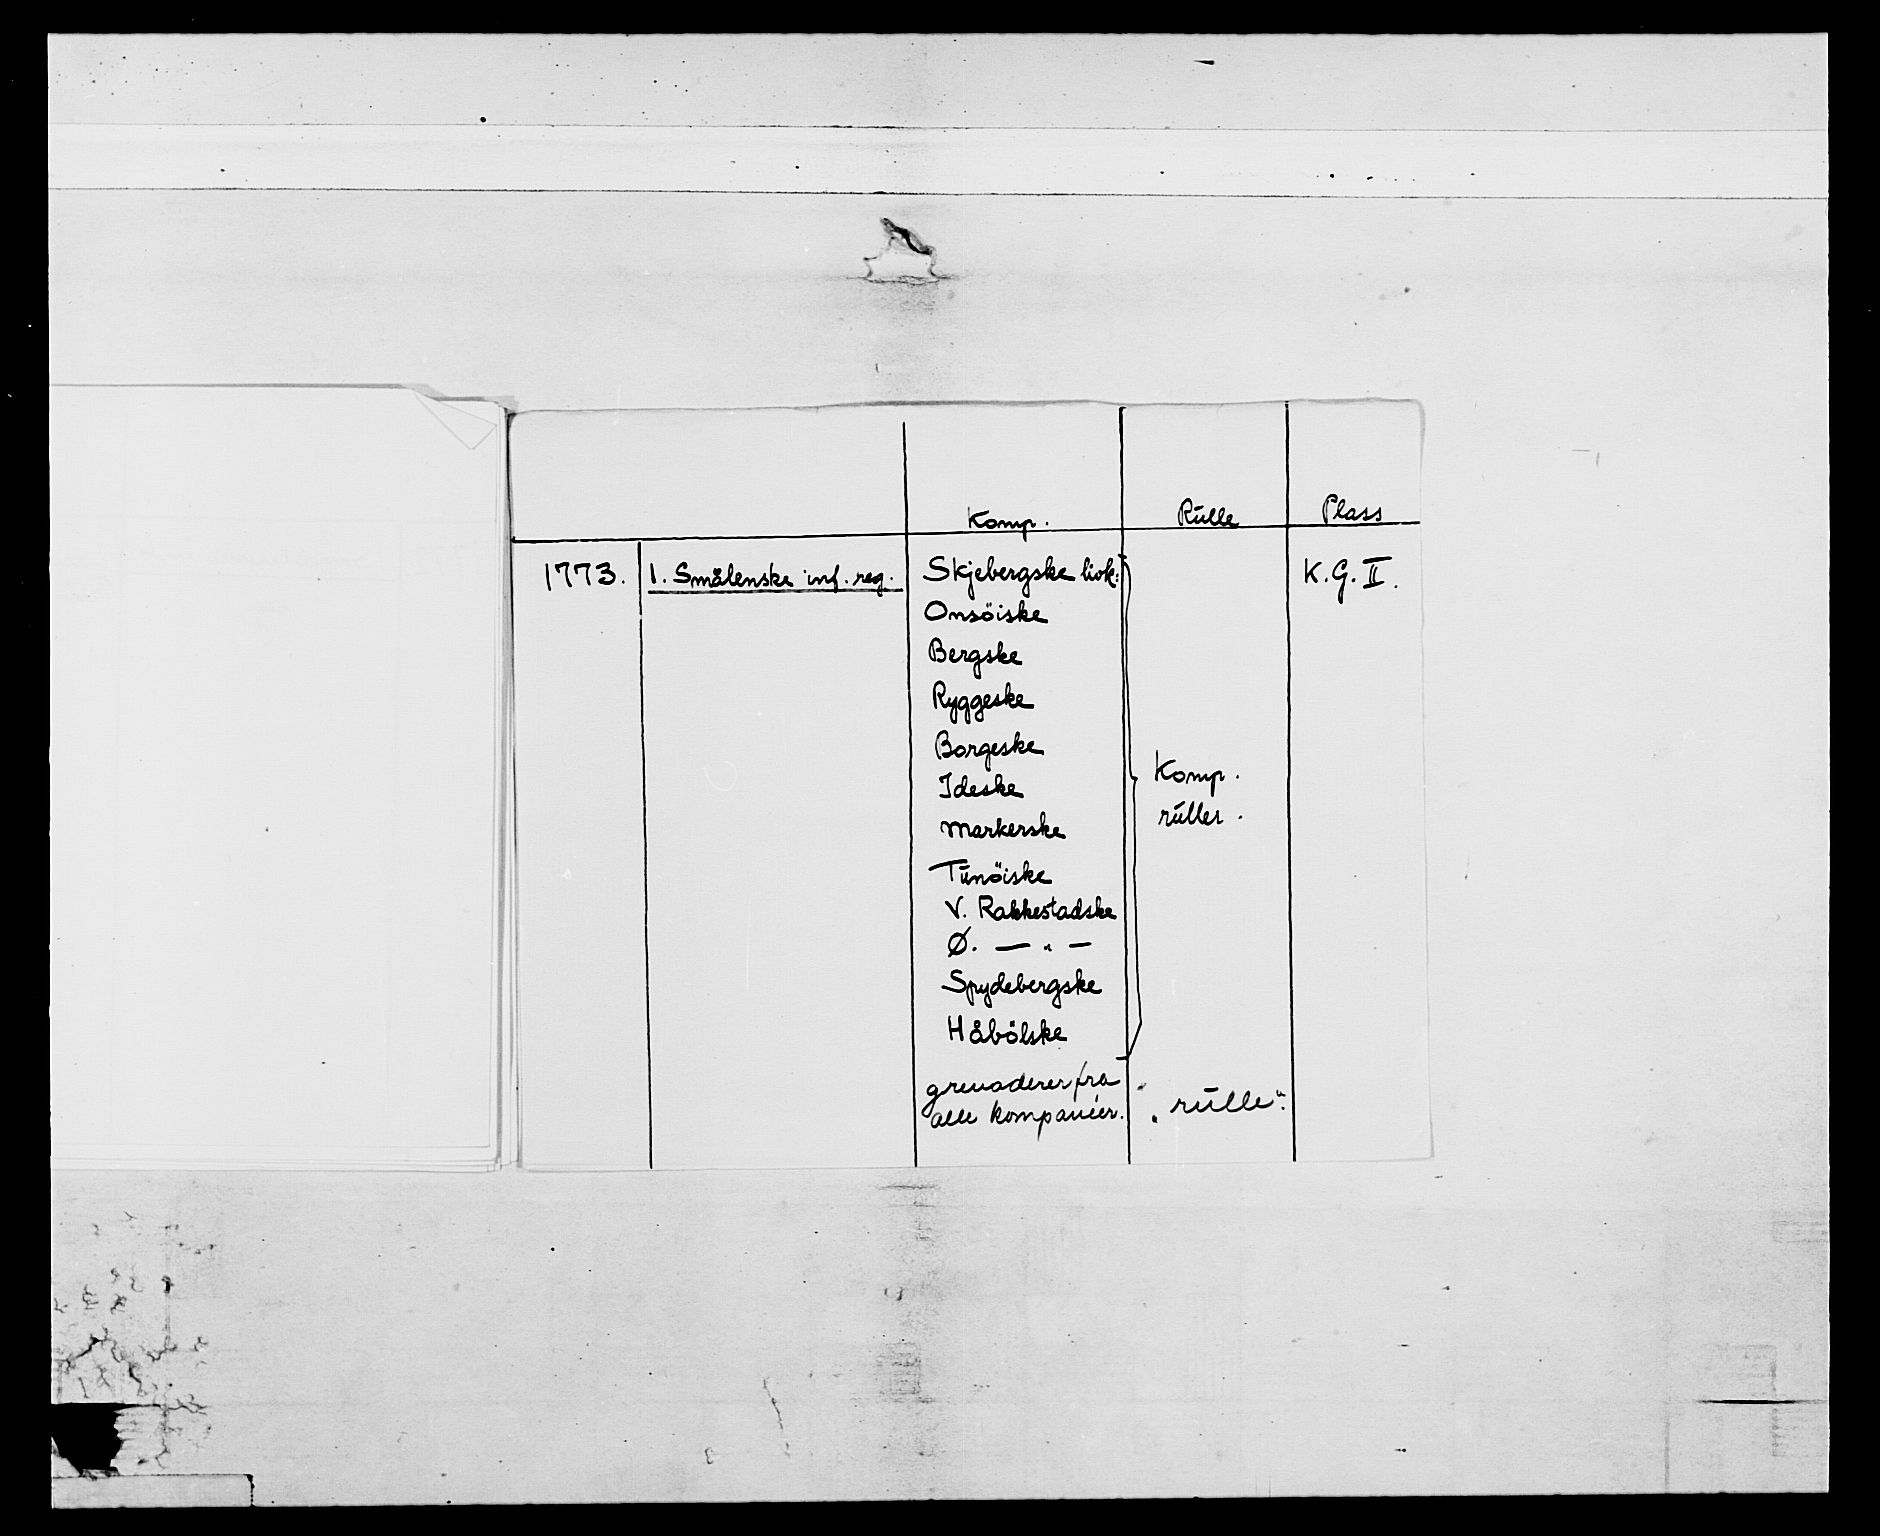 Komp. Rulle Plass
1773. 1. Smålenske inf. reg. Skjebergske livk: K.G. II.
Onsöiske
Bergske
Ryggeske
Borgeske
Ideske
Komp.
Markerske
ruller.
Tunöiske
V. Rakkestadske
Ø. — " —
Spydebergske
Håbölske
grenaderer fra
alle kompanier. "rulle".